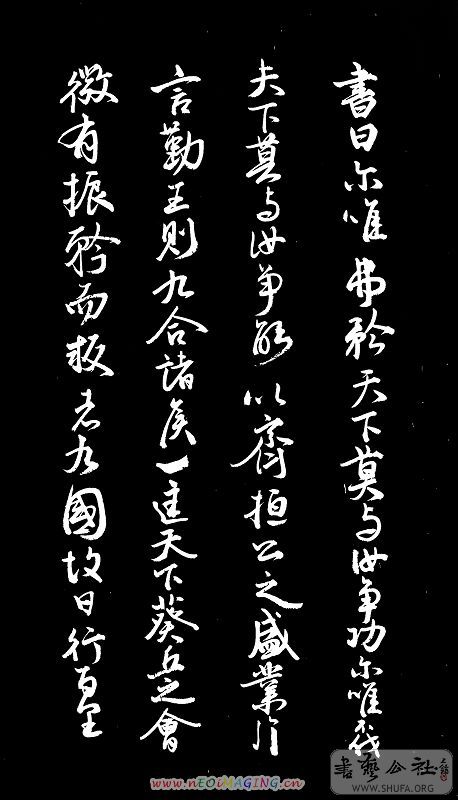 書曰尔唯弗矜天下莫与汝争功尔唯不伐
天下莫与汝争能以齊桓公之盛業片
言勤王則九合諸侯一匡天下葵丘之會
微有振矜而叛者九國故曰行百里
書藝公社
WWW.SHUFA.ORG
www.nEOiMAGiNG.cn